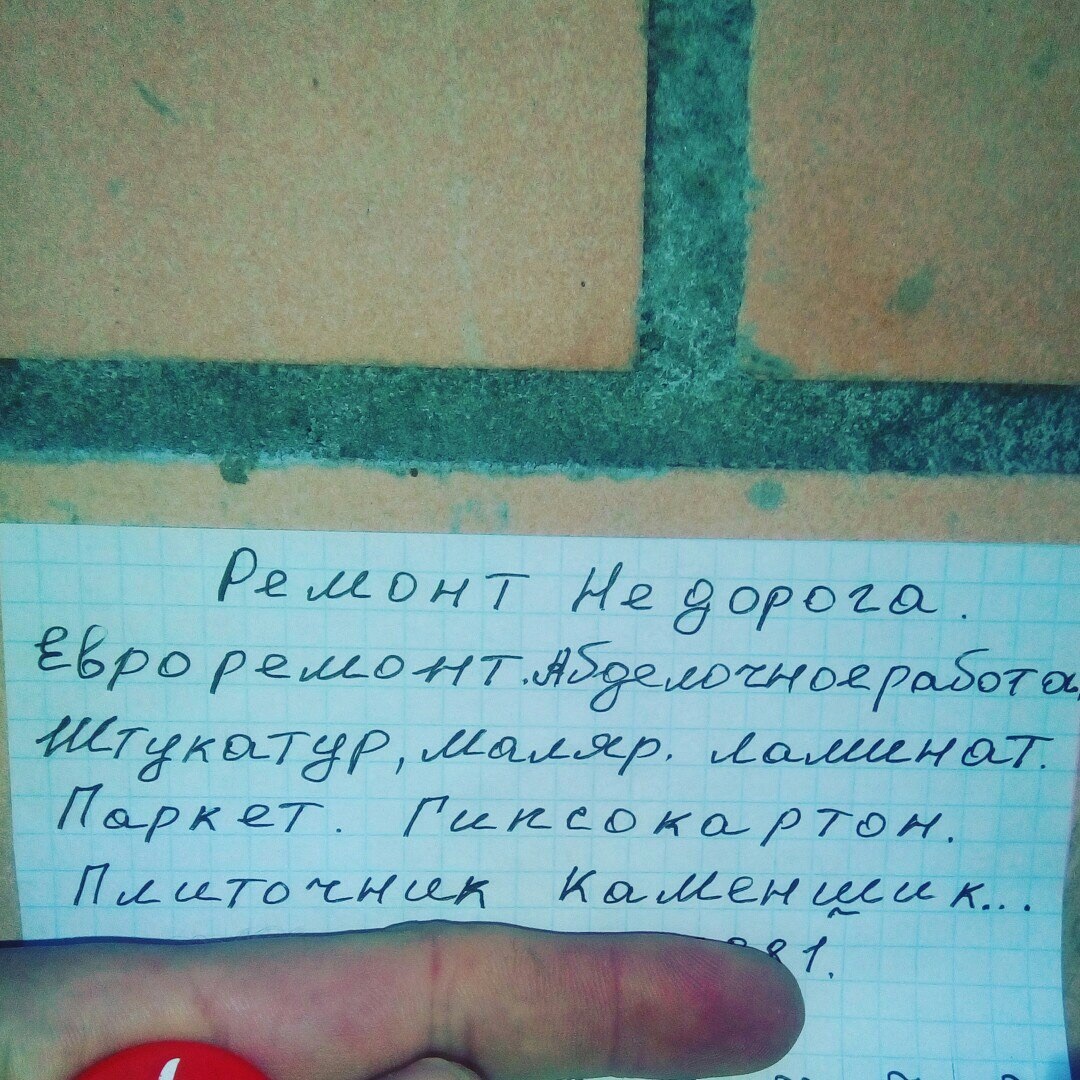 Ремонт Не дорога.
Евроремонт. Абделочное работа,
Штукатур, Маляр. Ламинат.
Паркет. Гипсокартон.
Плиточник Каменшик...
81.